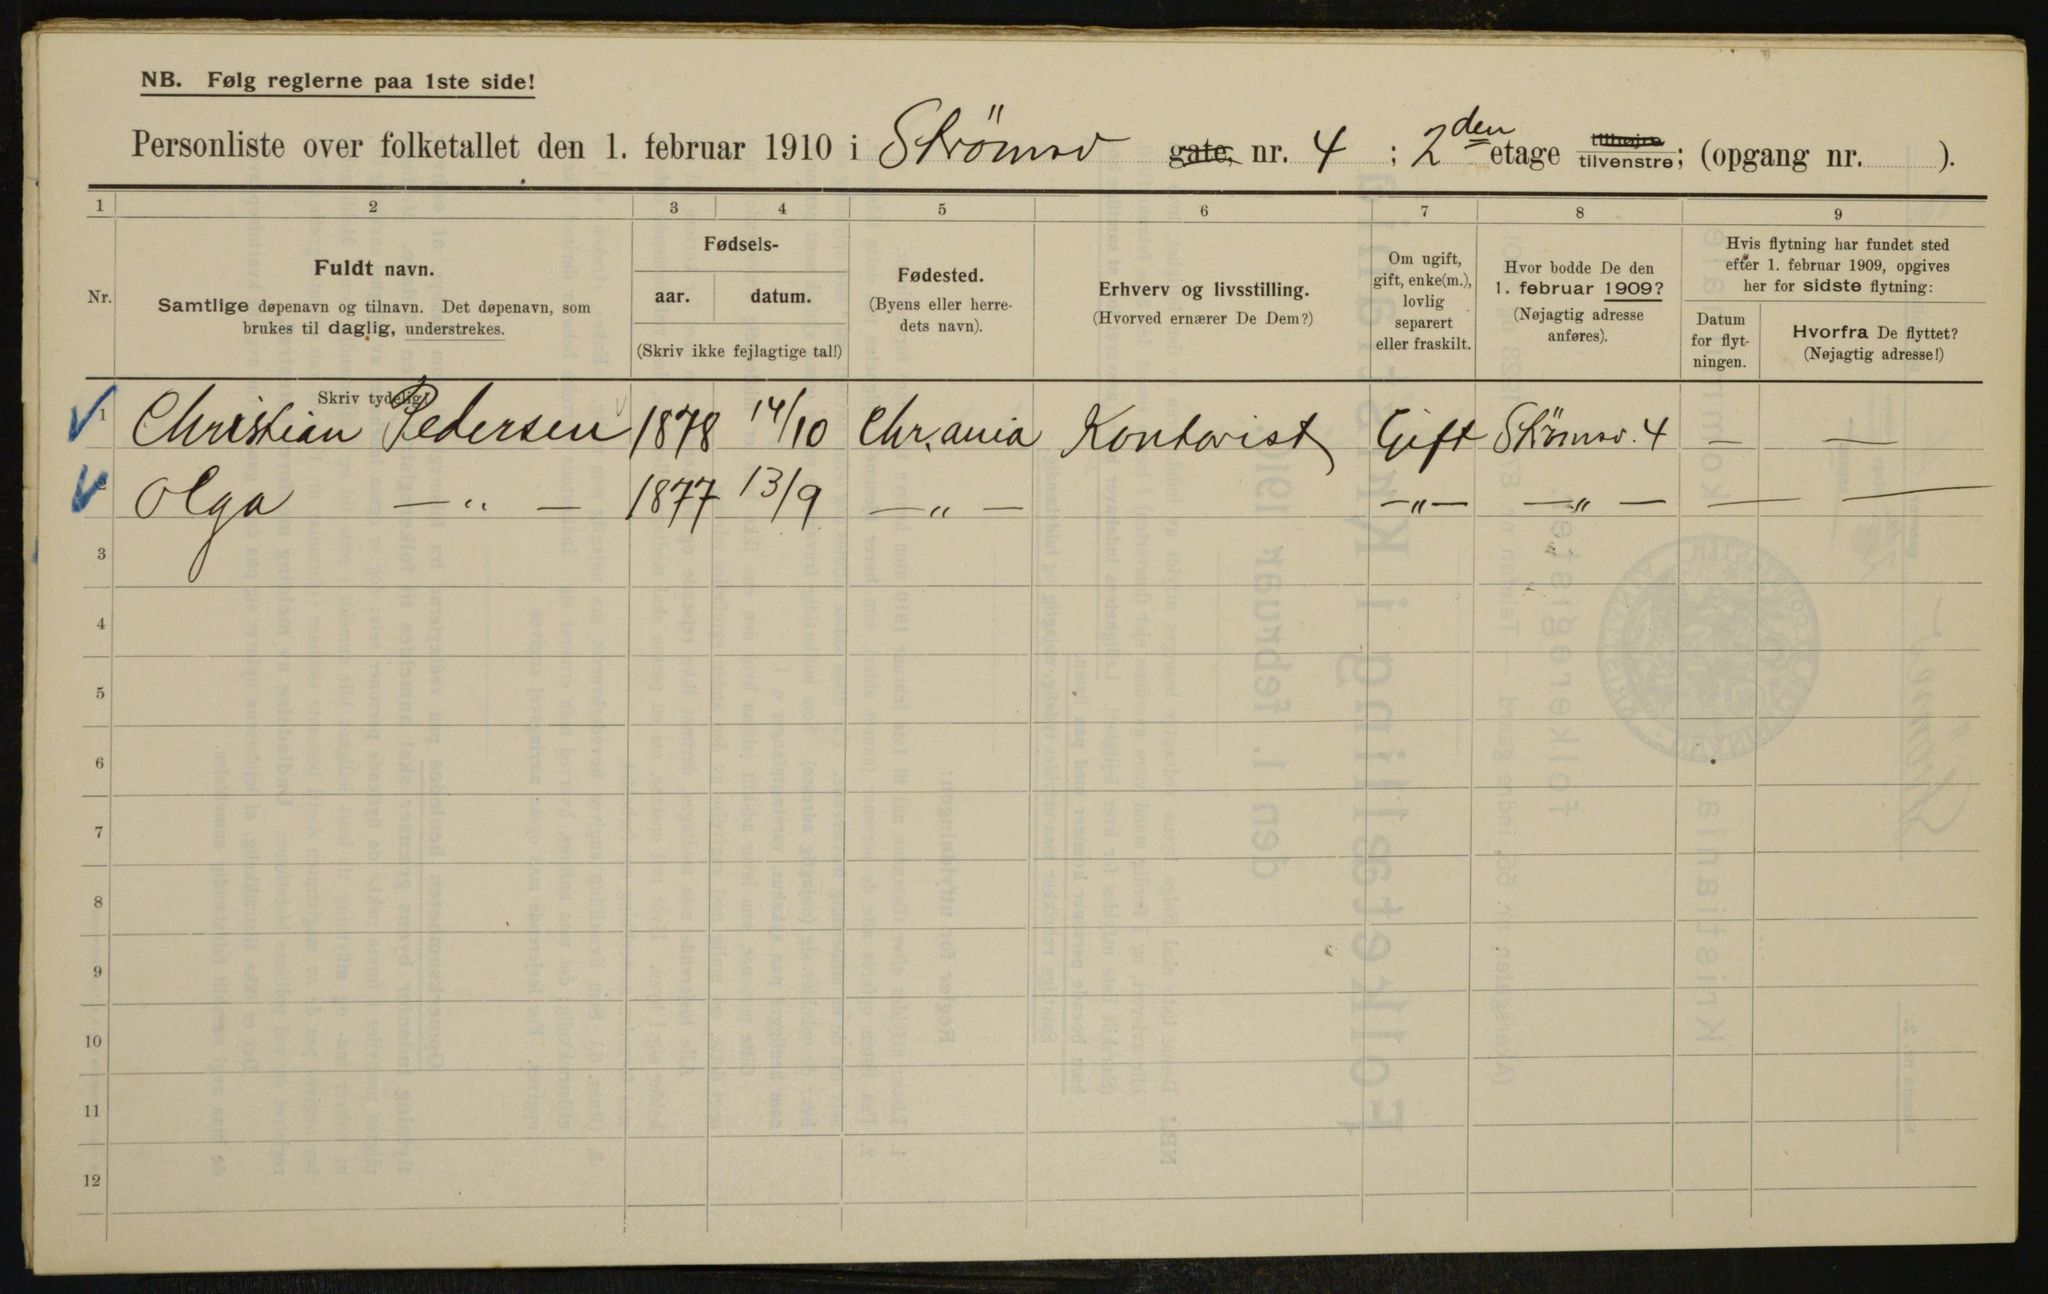 NB. Følg reglerne paa 1ste side!
Personliste over folketallet den 1. februar 1910 i Strömsv gate, nr. 4 ; 2den etage tilhøjre tilvenstre; (opgang nr. ).
1 2 3 4 5 6 7 8 9
Nr.
Fuldt navn.
Samtlige døpenavn og tilnavn. Det døpenavn, som
brukes til daglig, understrekes.
Fødsels-
aar. datum.
(Skriv ikke fejlagtige tal!)
Fødested.
(Byens eller herre-
dets navn).
Erhverv og livsstilling.
(Hvorved ernærer De Dem?)
Om ugift,
gift, enke(m.),
lovlig
separert
eller fraskilt.
Hvor bodde De den
1. februar 1909?
(Nøjagtig adresse
anføres).
Hvis flytning har fundet sted
efter 1. februar 1909, opgives
her for sidste flytning:
Datum
for flyt-
ningen.
Hvorfra De flyttet?
(Nøjagtig adresse!)
Skriv tydelig!
1 Christian Pedersen 1878 14/10 Chr.ania Kontorist Gift Strömsv. 4 — —
2 Olga — „ — 1877 13/9 — „ — — „ — — „ — — —
3
4
5
6
7
8
9
10
11
12